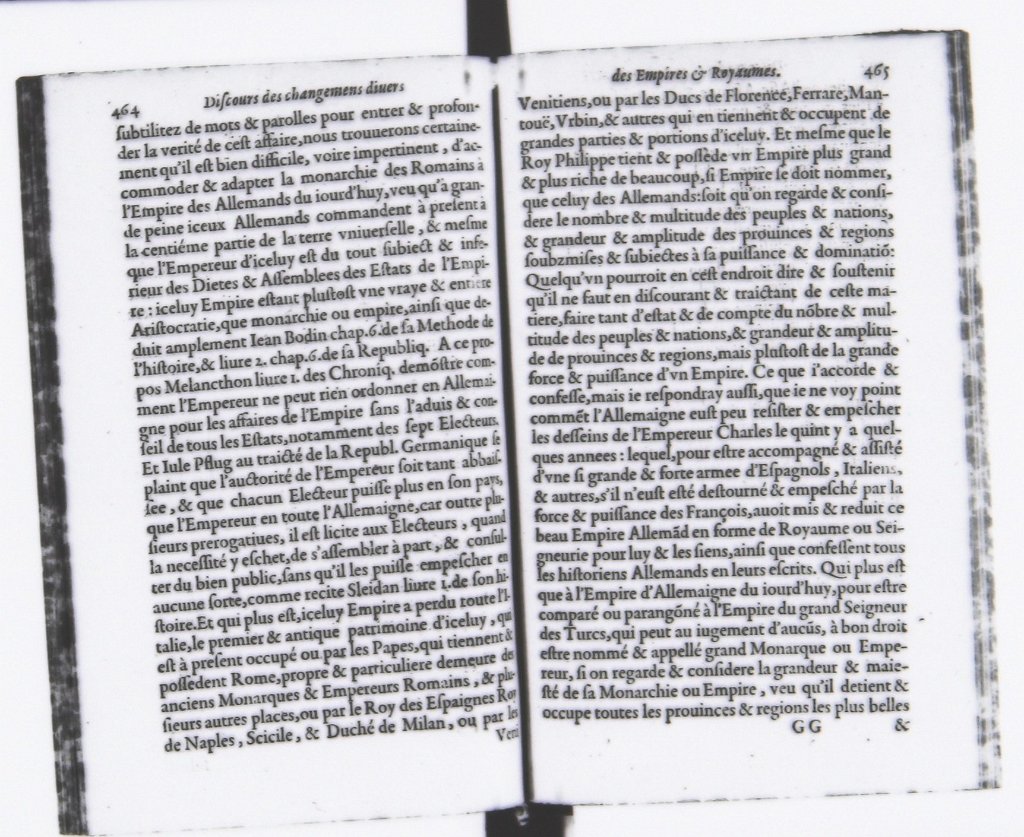 464 Discours des changemens diuers
subtilitez de mots & parolles pour entrer & profon-
der la verité de cest affaire,nous trouuerons certaine-
ment qu'il est bien difficile, voire impertinent, d'ac-
commoder & adapter la monarchie des Romains à
l'Empire des Allemands du iourd'huy,veu qu'à gran-
de peine iceux Allemands commandent à present à
la centiéme partie de la terre vniuerselle, & mesme
que l'Empereur d'iceluy est du tout subiect & infe-
rieur des Dietes & Assemblees des Estats de l'Empi-
re : iceluy Empire estant plustost vne vraye & entiere
Aristocratie,que monarchie ou empire,ainsi que de-
duit amplement Iean Bodin chap.6.de sa Methode de
l'histoire,& liure 2. chap.6.de sa Republiq. A ce pro-
pos Melancthon liure 1. des Chroniq. demõstre com-
ment l'Empereur ne peut rien ordonner en Allemai-
gne pour les affaires de l'Empire sans l'aduis & con-
seil de tous les Estats,notamment des sept Electeurs.
Et Iule Pflug au traicté de la Republ. Germanique se
plaint que l'auctorité de l'Empereur soit tant abbais-
see, & que chacun Electeur puisse plus en son pays,
que l'Empereur en toute l'Allemaigne,car outre plu-
sieurs prerogatiues, il est licite aux Electeurs, quand
la necessité y eschet,de s'assembler à part, & consul-
ter du bien public,sans qu'il les puisse empescher en
aucune sorte,comme recite Sleidan liure 1.de son hi-
stoire.Et qui plus est,iceluy Empire a perdu toute l'I-
talie,le premier & antique patrimoine d'iceluy, qui
est à present occupé ou par les Papes,qui tiennent &
possedent Rome,propre & particuliere demeure des
anciens Monarques & Empereurs Romains, & plu-
sieurs autres places,ou par le Roy des Espaignes Roy
de Naples, Scicile, & Duché de Milan, ou par les
Veni
des Empires & Royaumes. 465
Venitiens,ou par les Ducs de Florence,Ferrare,Man-
touë,Vrbin,& autres qui en tiennent & occupent de
grandes parties & portions d'iceluy. Et mesme que le
Roy Philippe tient & possède vn Empire plus grand
& plus riche de beaucoup,si Empire se doit nommer,
que celuy des Allemands:soit qu'on regarde & consi-
dere le nombre & multitude des peuples & nations,
& grandeur & amplitude des prouinces & regions
soubzmises & subiectes à sa puissance & dominatiõ:
Quelqu'vn pourroit en cest endroit dire & soustenir
qu'il ne faut en discourant & traictant de ceste ma-
tiere,faire tant d'estat & de compte du nõbre & mul-
titude des peuples & nations,& grandeur & amplitu-
de de prouinces & regions,mais plustost de la grande
force & puissance d'vn Empire. Ce que i'accorde &
confesse,mais ie respondray aussi,que ie ne voy point
commẽt l'Allemaigne eust peu resister & empescher
les desseins de l'Empereur Charles le quint y a quel-
ques annees : lequel,pour estre accompagné & assisté
d'vne si grande & forte armee d'Espagnols, Italiens,
& autres,s'il n'eust esté destourné & empesché par la
force & puissance des François,auoit mis & reduit ce
beau Empire Allemãd en forme de Royaume ou Sei-
gneurie pour luy & les siens,ainsi que confessent tous
les historiens Allemands en leurs escrits. Qui plus est
que à l'Empire d'Allemaigne du iourd'huy,pour estre
comparé ou parangõné à l'Empire du grand Seigneur
des Turcs,qui peut au iugement d'aucũs, à bon droit
estre nommé & appellé grand Monarque ou Empe-
reur, si on regarde & considere la grandeur & maie-
sté de sa Monarchie ou Empire, veu qu'il detient &
occupe toutes les prouinces & regions les plus belles
GG &